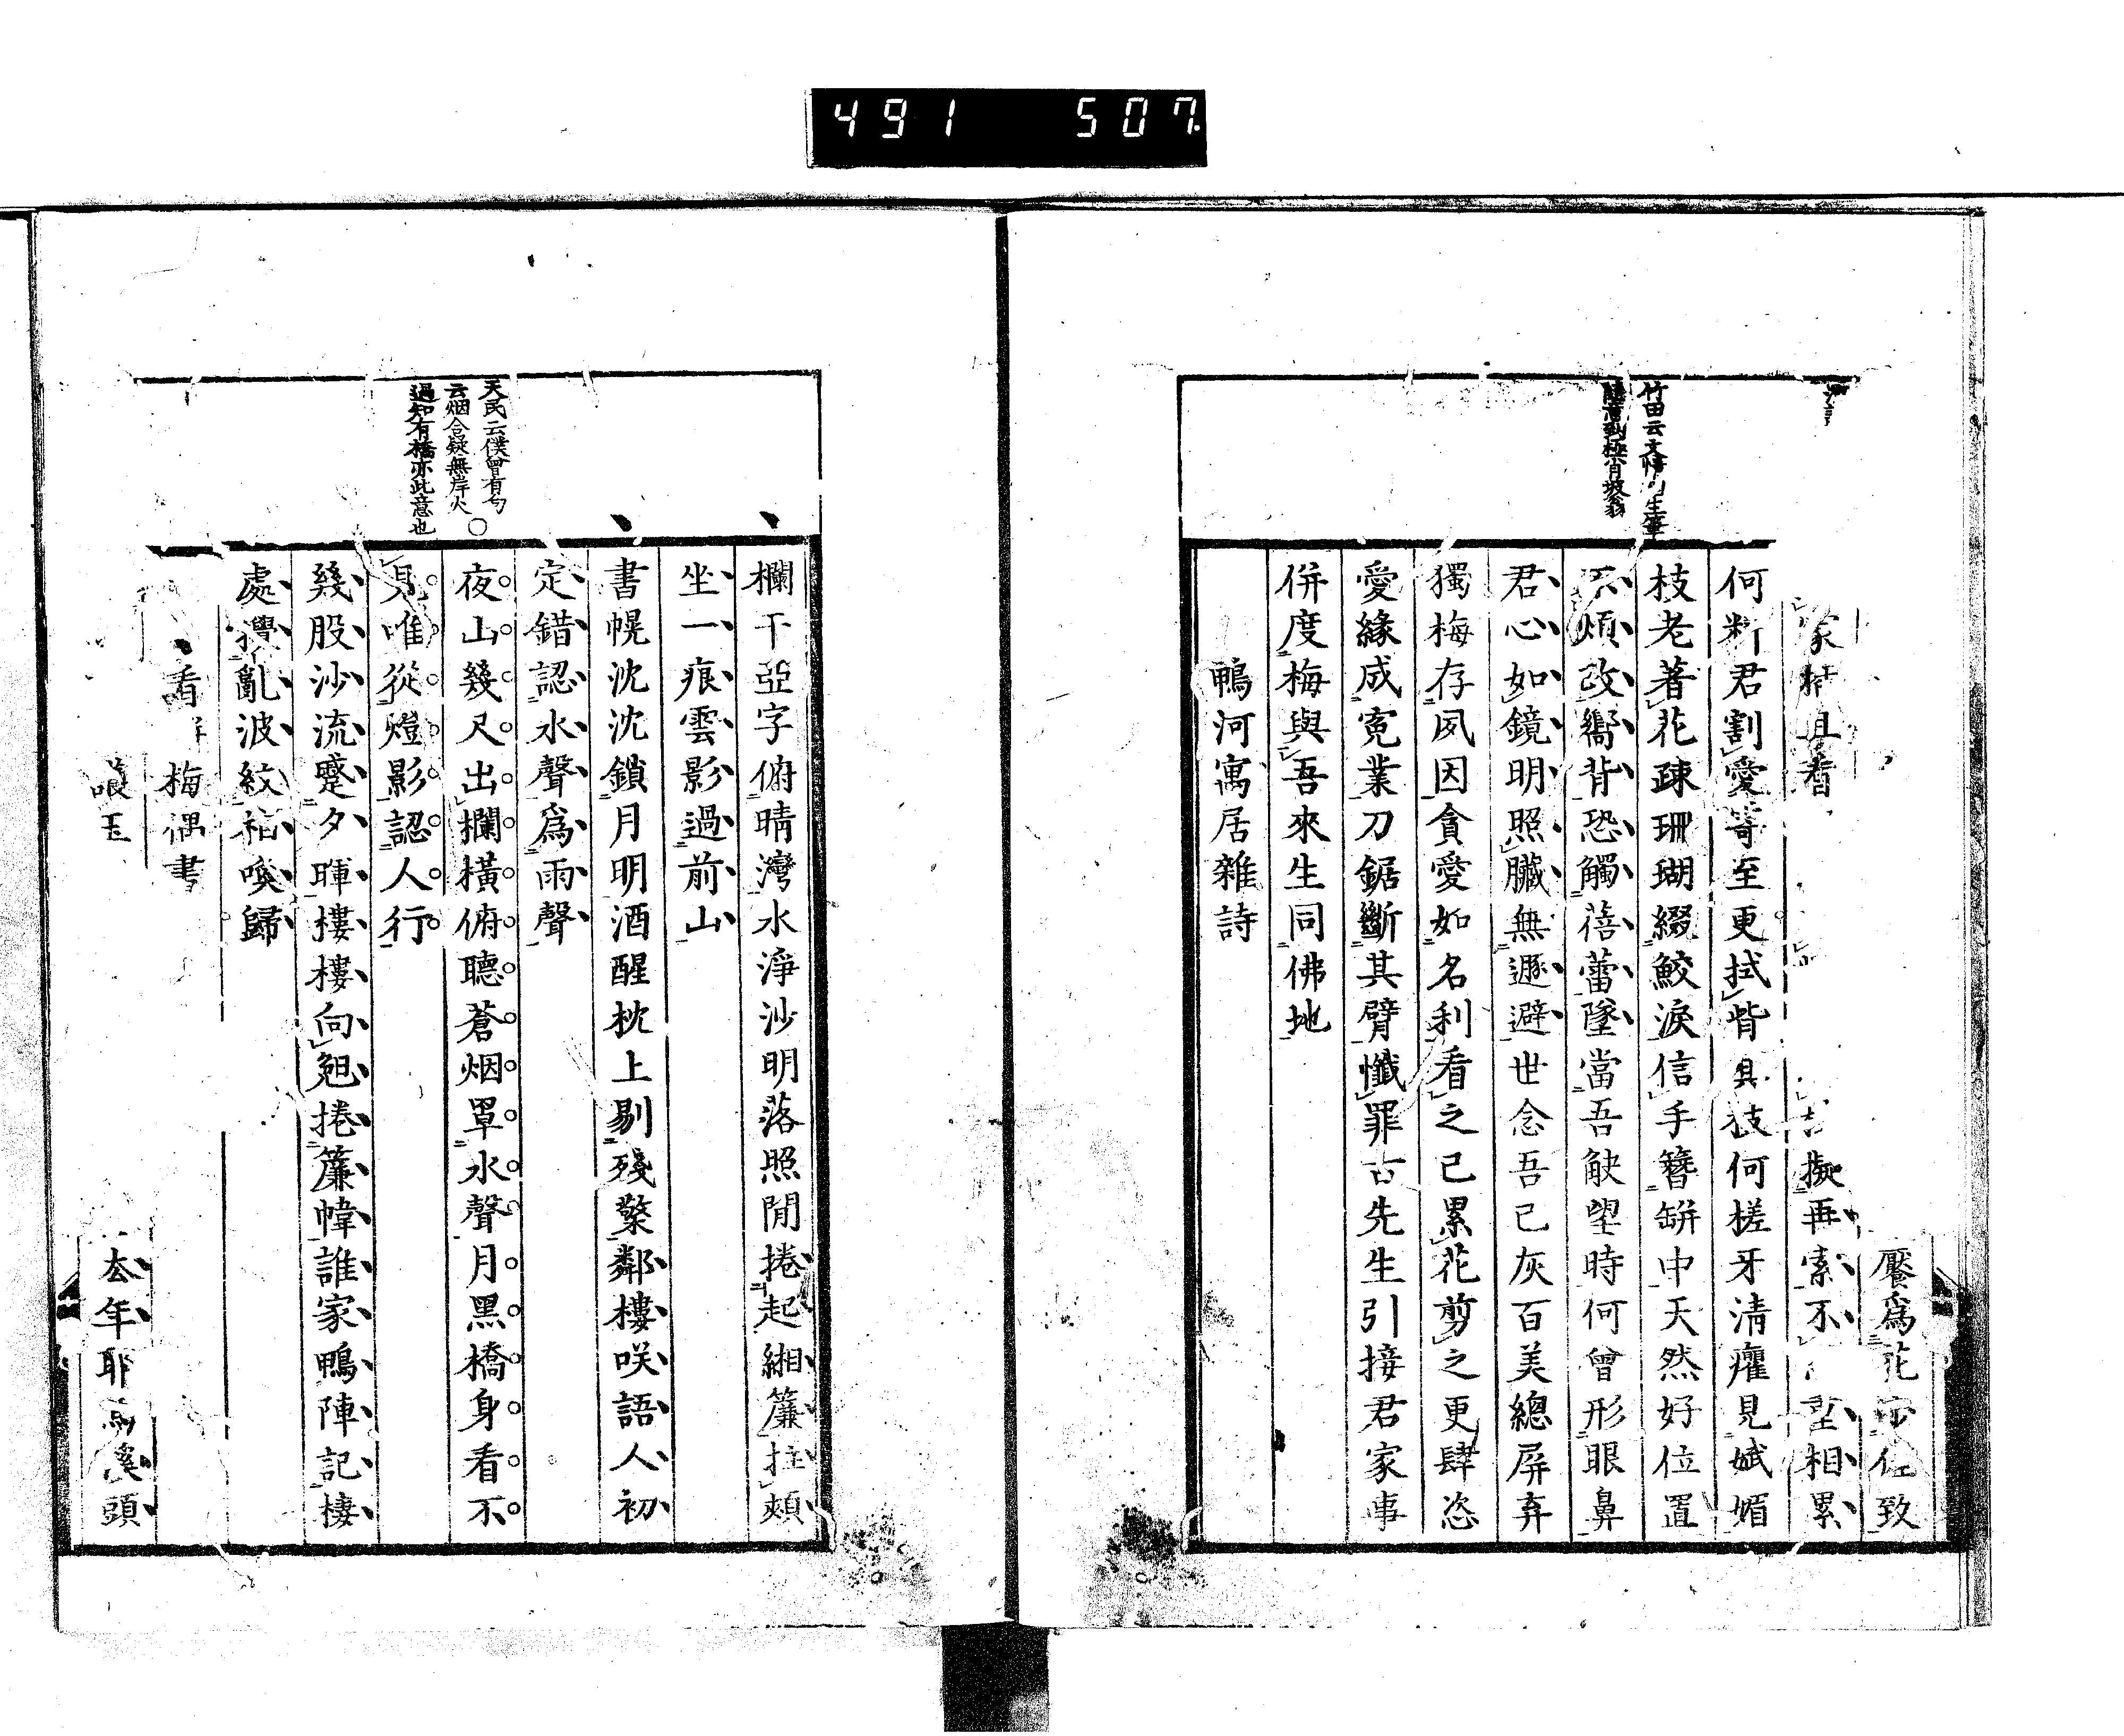 491 507
竹田云文情
饜爲花 致
家 且看 擬再索不 相累
何斷君割愛寄至更拭眥 技何槎牙淸癯見嫵媚
枝老著花疎珊瑚綴鮫淚信手簪缾中天然好位置
不煩改嚮背恐觸蓓蕾墜當吾觖望時何曾形眼鼻
君心如鏡明照臟無遯避世念吾已灰百美總屏弃
獨梅存夙因貪愛如名利看之已累花剪之更肆恣
愛緣成寃業刀鋸斷其臂懺罪古先生引接君家事
併度梅與吾來生同佛地
鴨河寓居雜詩
天民云僕曾有句
云烟合疑無岸火
過知有橋亦此意也
欄干亞字俯晴灣水淨沙明落照閒捲起緗簾拄頰
坐一痕雲影過前山
書幌沈沈鎖月明酒醒枕上剔殘檠鄰樓咲語人初
定錯認水聲爲雨聲
夜山幾尺出欄橫俯聽蒼烟罩水聲月黑橋身看不
見唯從燈影認人行
幾股沙流蹙夕暉樓樓向晩捲簾幃誰家鴨陣記棲
處攪亂波紋相喚歸
看 梅偶書
去年耶馬溪頭